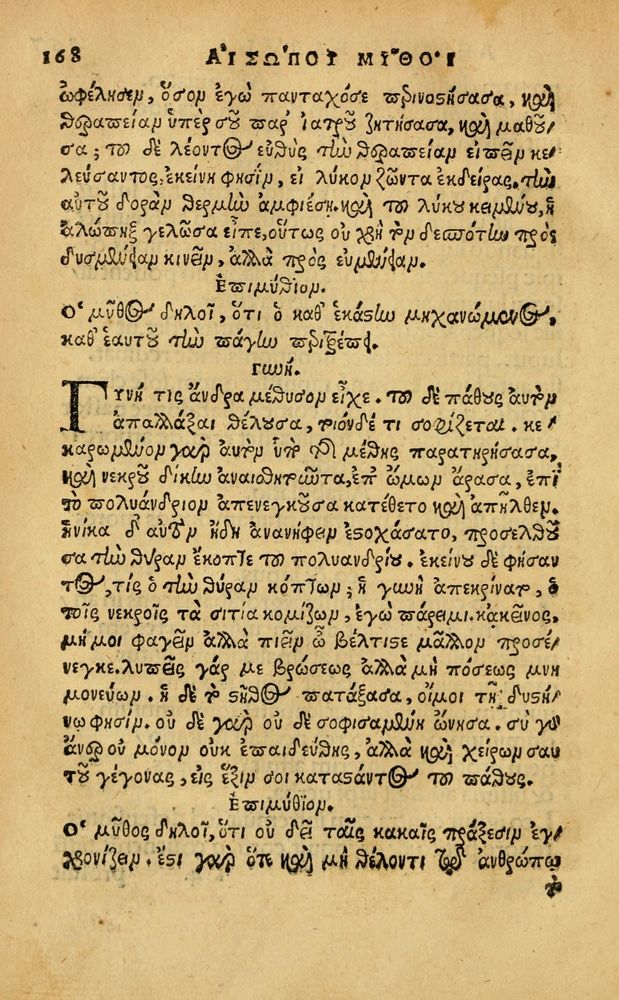 168 ΑἸΣΩΠΟΥ ΜΥΘΟΙ
ὠφέλησεν, ὅσον ἐγὼ πανταχόσε περινοστήσασα, καὶ
θεραπείαν ὑπὲρ σοῦ παρ' ἰατροῦ ζητήσασα, καὶ μαθοῦ
σα; τοῦ δὲ λέοντος εὐθὺς τὴν θεραπείαν εἰπεῖν κε-
λεύσαντος, ἐκείνη φησὶν, εἰ λύκον ζῶντα ἐκδείρας, τὴν
αὐτοῦ δορὰν θερμὴν ἀμφιέσῃ. καὶ τοῦ λύκου κειμένου, ἡ
ἀλώπηξ γελῶσα εἶπε, οὕτως οὐ χρὴ τὸν δεσπότην πρὸς
δυσμένειαν κινεῖν, ἀλλὰ πρὸς εὐμένειαν.
Ἐπιμύθιον.
Ὁ μῦθος δηλοῖ, ὅτι ὁ καθ' ἑκάστην μηχανώμενος,
καθ' ἑαυτοῦ τὴν πάγην περιτρέπει.
Γυνή.
Γυνή τις ἄνδρα μέθυσον εἶχε. τοῦ δὲ πάθους αὐτὸν
ἀπαλλάξαι θέλουσα, τοιόνδε τι σοφίζεται. κε-
καρωμένον γὰρ αὐτὸν ὑπὸ τῆς μέθης παρατηρήσασα,
καὶ νεκροῦ δίκην ἀναισθητοῦντα, ἐπ' ὤμων ἄρασα, ἐπὶ
τὸ πολυάνδριον ἀπενεγκοῦσα κατέθετο καὶ ἀπῆλθεν.
ἡνίκα δ' αὐτὸν ἤδη ἀνανήφειν ἐστοχάσατο, προσελθοῦ
σα τὴν θύραν ἔκοπτε τοῦ πολυανδρίου. ἐκείνου δὲ φήσαν
τος, τίς ὁ τὴν θύραν κόπτων; ἡ γυνὴ ἀπεκρίνατο, ὁ
τοῖς νεκροῖς τὰ σιτία κομίζων, ἐγὼ πάρειμι. κἀκεῖνος,
μή μοι φαγεῖν ἀλλὰ πιεῖν ὦ βέλτιστε μᾶλλον προσέ-
νεγκε. λυπεῖς γάρ με βρώσεως ἀλλὰ μὴ πόσεως μνη
μονεύων. ἡ δὲ τὸ στῆθος πατάξασα, οἴμοι τῇ δυστή-
νῳ φησίν. οὐ δὲ γὰρ οὐ δὲ σοφισαμένη ὤνησα. σὺ γὰρ
ἄνερ οὐ μόνον οὐκ ἐπαιδεύθης, ἀλλὰ καὶ χείρων σαυ
τοῦ γέγονας, εἰς ἕξιν σοι καταστάντος τοῦ πάθους.
Ἐπιμύθιον.
Ὁ μῦθος δηλοῖ, ὅτι οὐ δεῖ ταῖς κακαῖς πράξεσιν ἐγ-
χρονίζειν. ἔστι γὰρ ὅτε καὶ μὴ θέλοντι τῷ ἀνθρώπῳ
τὸ